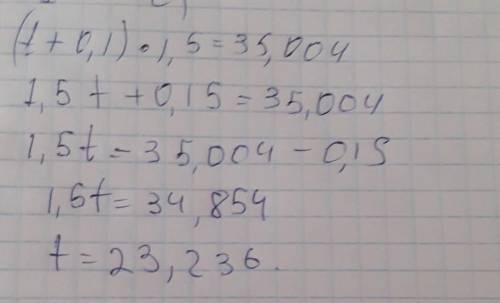 (t + 0,1) • 1,5 = 35,004
1,5 t + 0,15 = 35,004
1,5t = 35,004 - 0,15
1,5t = 34,854
t = 23,236.